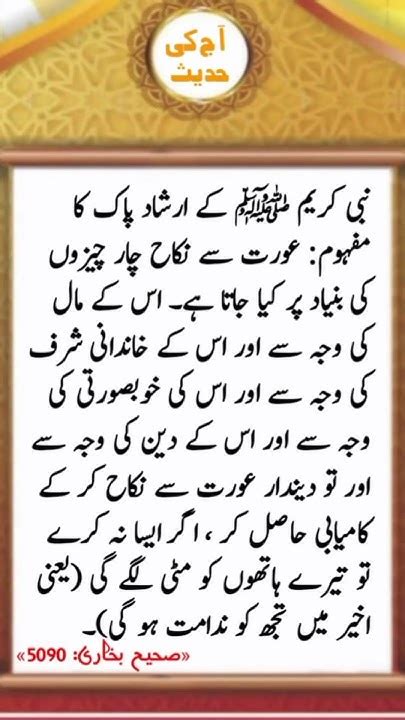 آج کی
حدیث
نبی کریم ﷺ کے ارشاد پاک کا
مفہوم: عورت سے نکاح چار چیزوں
کی بنیاد پر کیا جاتا ہے۔ اس کے مال
کی وجہ سے اور اس کے خاندانی شرف
کی وجہ سے اور اس کی خوبصورتی کی
وجہ سے اور اس کے دین کی وجہ سے
اور تو دیندار عورت سے نکاح کر کے
کامیابی حاصل کر ، اگر ایسا نہ کرے
تو تیرے ہاتھوں کو مٹی لگے گی (یعنی
اخیر میں تجھ کو ندامت ہو گی)۔
«صحیح بخاری: 5090»